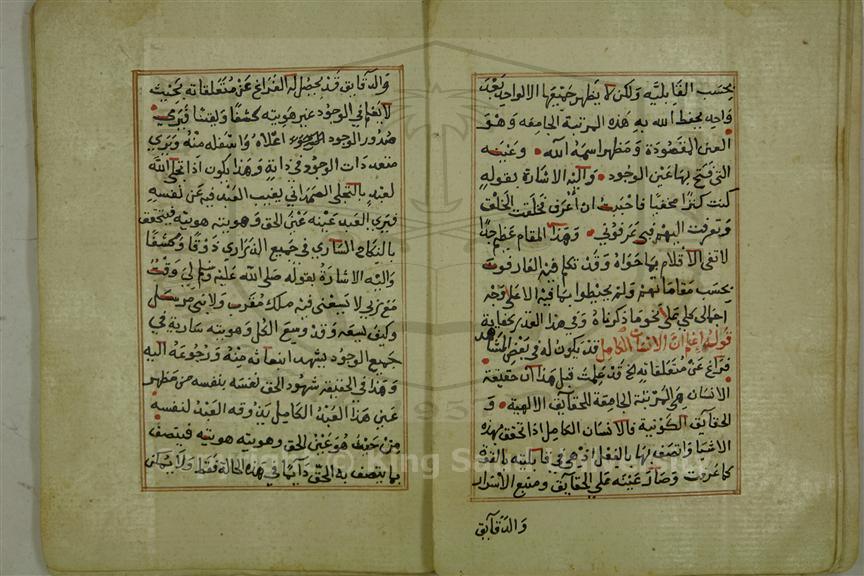 بحسب القابليه ولكن لا يظهر جميعها الا لواحد بعد
واحد يحفظ الله به هذه المرتبة الجامعه وهو
العين المقصودة ومظهر اسمه الله وعينه
التي فتح بها عين الوجود واليه الاشارة بقوله
كنت كنزا مخفيا فاحببت ان أعرف فخلقت الخلق
وتعرفت اليهم فبي عرفوني وهذا المقام عظيم جدا
لا تفي الاقلام بما حواه وقد تكلم فيه العارفون
بحسب مقاماتهم ولم يحيطوا بما فيه الا على وجه
اجمالي كلي على نحو ما ذكرناه وفي هذا القدر كفاية
قوله اعلم ان الانسان الكامل قد يكون له في بعض المشاهد
فراغ عن متعلقاته لخ قد علمت قبل هذا ان حقيقة
الانسان هي المرتبة الجامعة للحقايق الالهية و
الحقايق الكونية والانسان الكامل اذا تحقق بهذه
الاشيا واتصف بها بالفعل اذ هي في قابليته بالقوة
كما عرفت وصار عينه على الحقايق ومنبع الاسرار
والدقايق
والدقايق قد يحصل له الفراغ عن متعلقاته بحيث
لا يبقى في الوجود غير هويته كشفا ويقينا فيرى
صدور الوجود اعلاه واسفله منه ويرى
متعددات الوجود في ذاته وهذا يكون اذا تجلى الله
لعبده بالتجلي الصمداني يغيب العبد فيه عن نفسه
فيرى العبد عينه عين الحق وهويته هويته فيتحقق
بالنكاح الساري في جميع الذراري ذوقا وكشفا
واليه الاشارة بقوله صلى الله عليه وسلم لي وقت
مع ربي لا يسعني فيه ملك مقرب ولا نبي مرسل
وكيف يسعه وقد وسع الكل وهويته سارية في
جميع الوجود يشهد انبعاثه منه ورجوعه اليه
وهذا في الحقيقة شهود الحق نفسه بنفسه من مظهر
عين هذا العبد الكامل يذوقه العبد لنفسه
من حيث هو عين الحق وهويته هويته فيتصف
بما يتصف به الحق دايما في هذه الحالة فقط ولا